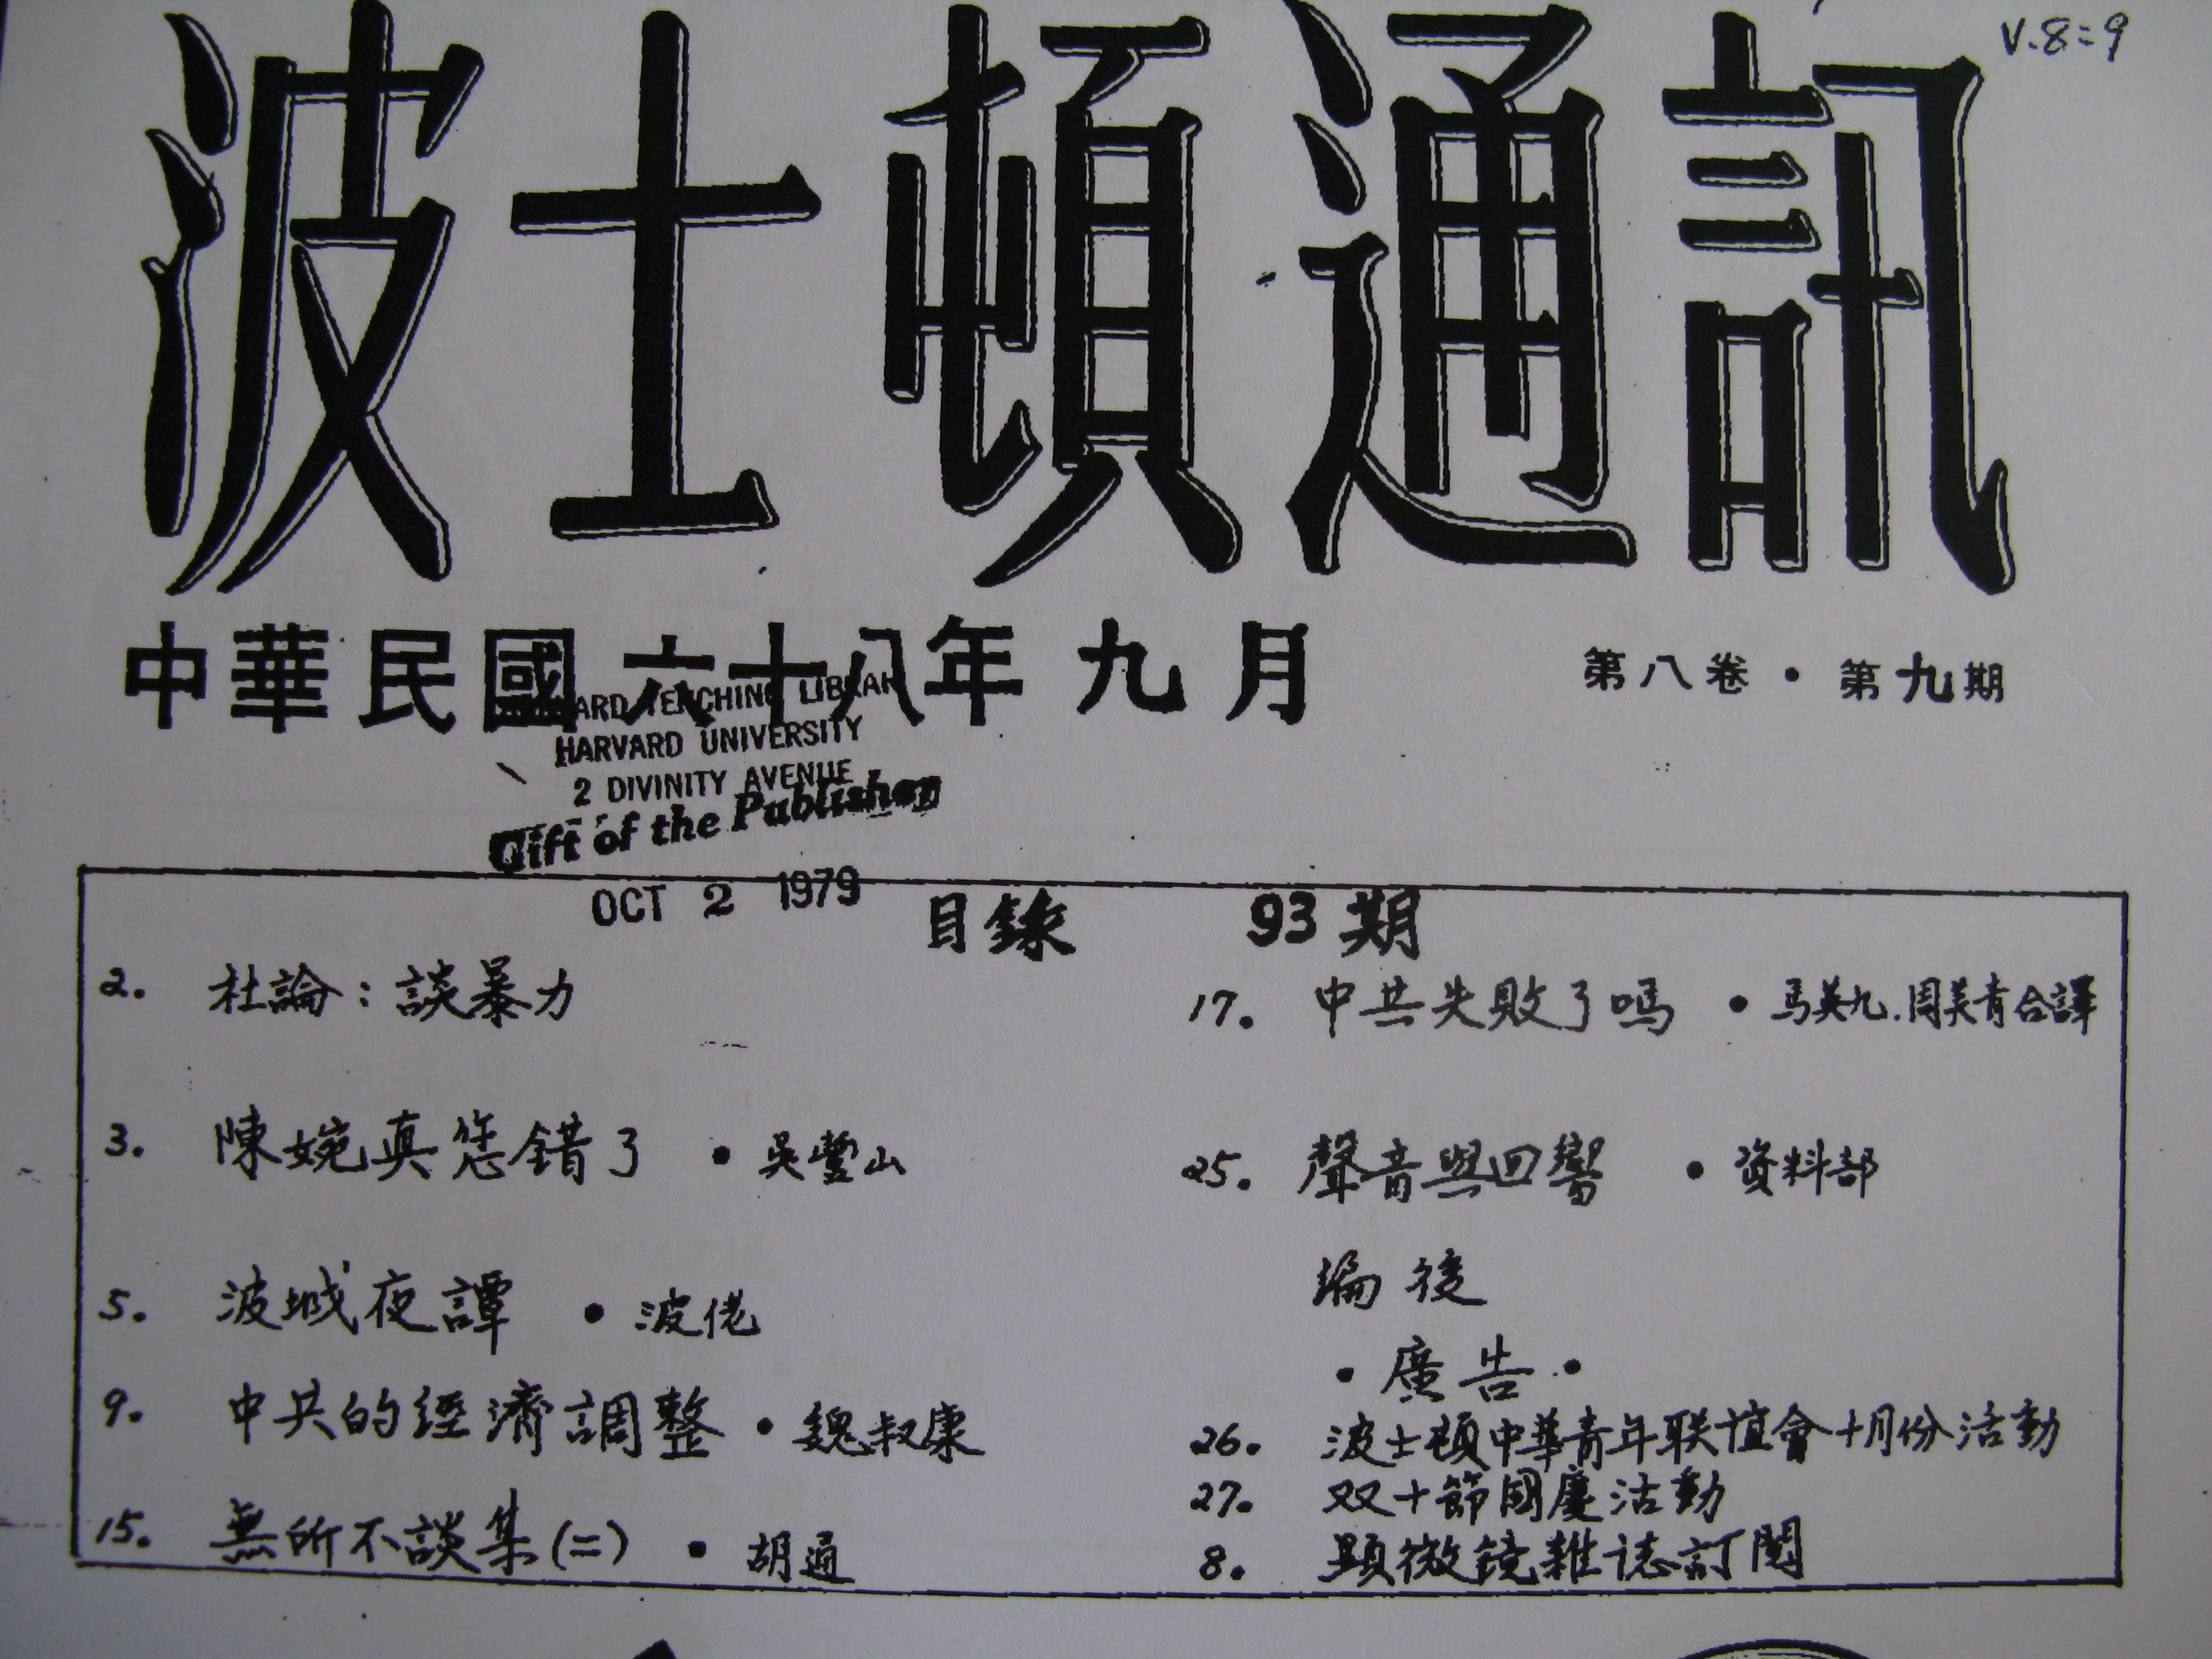 V.8:9
波士頓通訊
中華民國六十八年九月
第八卷・第九期
HARVARD UNIVERSITY
2 DIVINITY AVENUE
Gift of the Publisher
OCT 2 1979
目錄 93期
2. 社論：談暴力
3. 陳婉真您錯了 • 吳豐山
5. 波城夜譚 • 波佬
9. 中共的經濟調整 • 魏叔康
15. 無所不談集(二) • 胡通
17. 中共失敗了嗎 • 馬英九.周美青合譯
25. 聲音與回響 • 資料部
編後
•廣告•
26. 波士頓中華青年联誼會十月份活動
27. 双十節國慶活動
8. 顕微镜雜誌訂閱